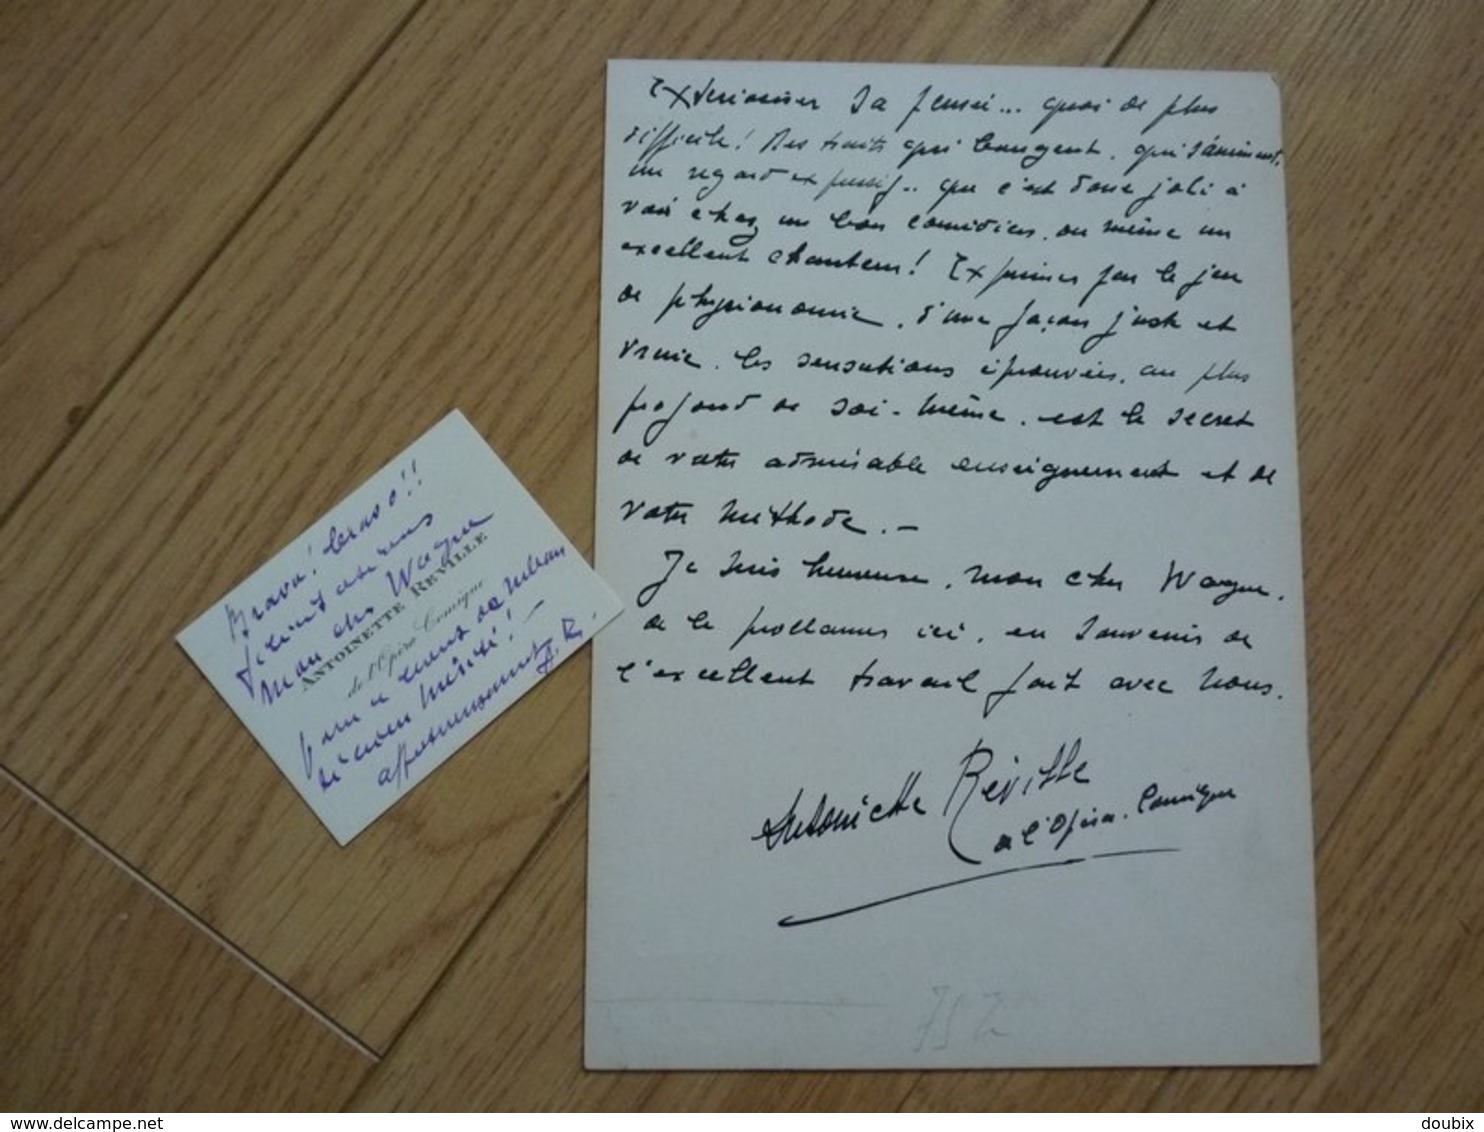 Extérioriser sa pensée... quoi de plus
difficile! Des traits qui bougent, qui s'animent,
un regard expressif.. que c'est donc joli à
voir chez un bon comédien, ou même un
excellent chanteur! Exprimer par le jeu
de physionomie, d'une façon juste et
vraie, les sensations éprouvées, au plus
profond de soi-même, est le secret
de votre admirable enseignement et de
votre méthode. —
Je suis heureuse, mon cher Wague,
de le proclamer ici, en souvenir de
l'excellent travail fait avec vous.
Antoinette Réville
de l'Opéra-Comique
752
Bravo! bravo!!
félicitations
mon cher Wague
ANTOINETTE REVILLE
de l'Opéra Comique
pour ce ruban
si bien mérité! —
affectueusement A.R.
www.delcampe.net
doubix